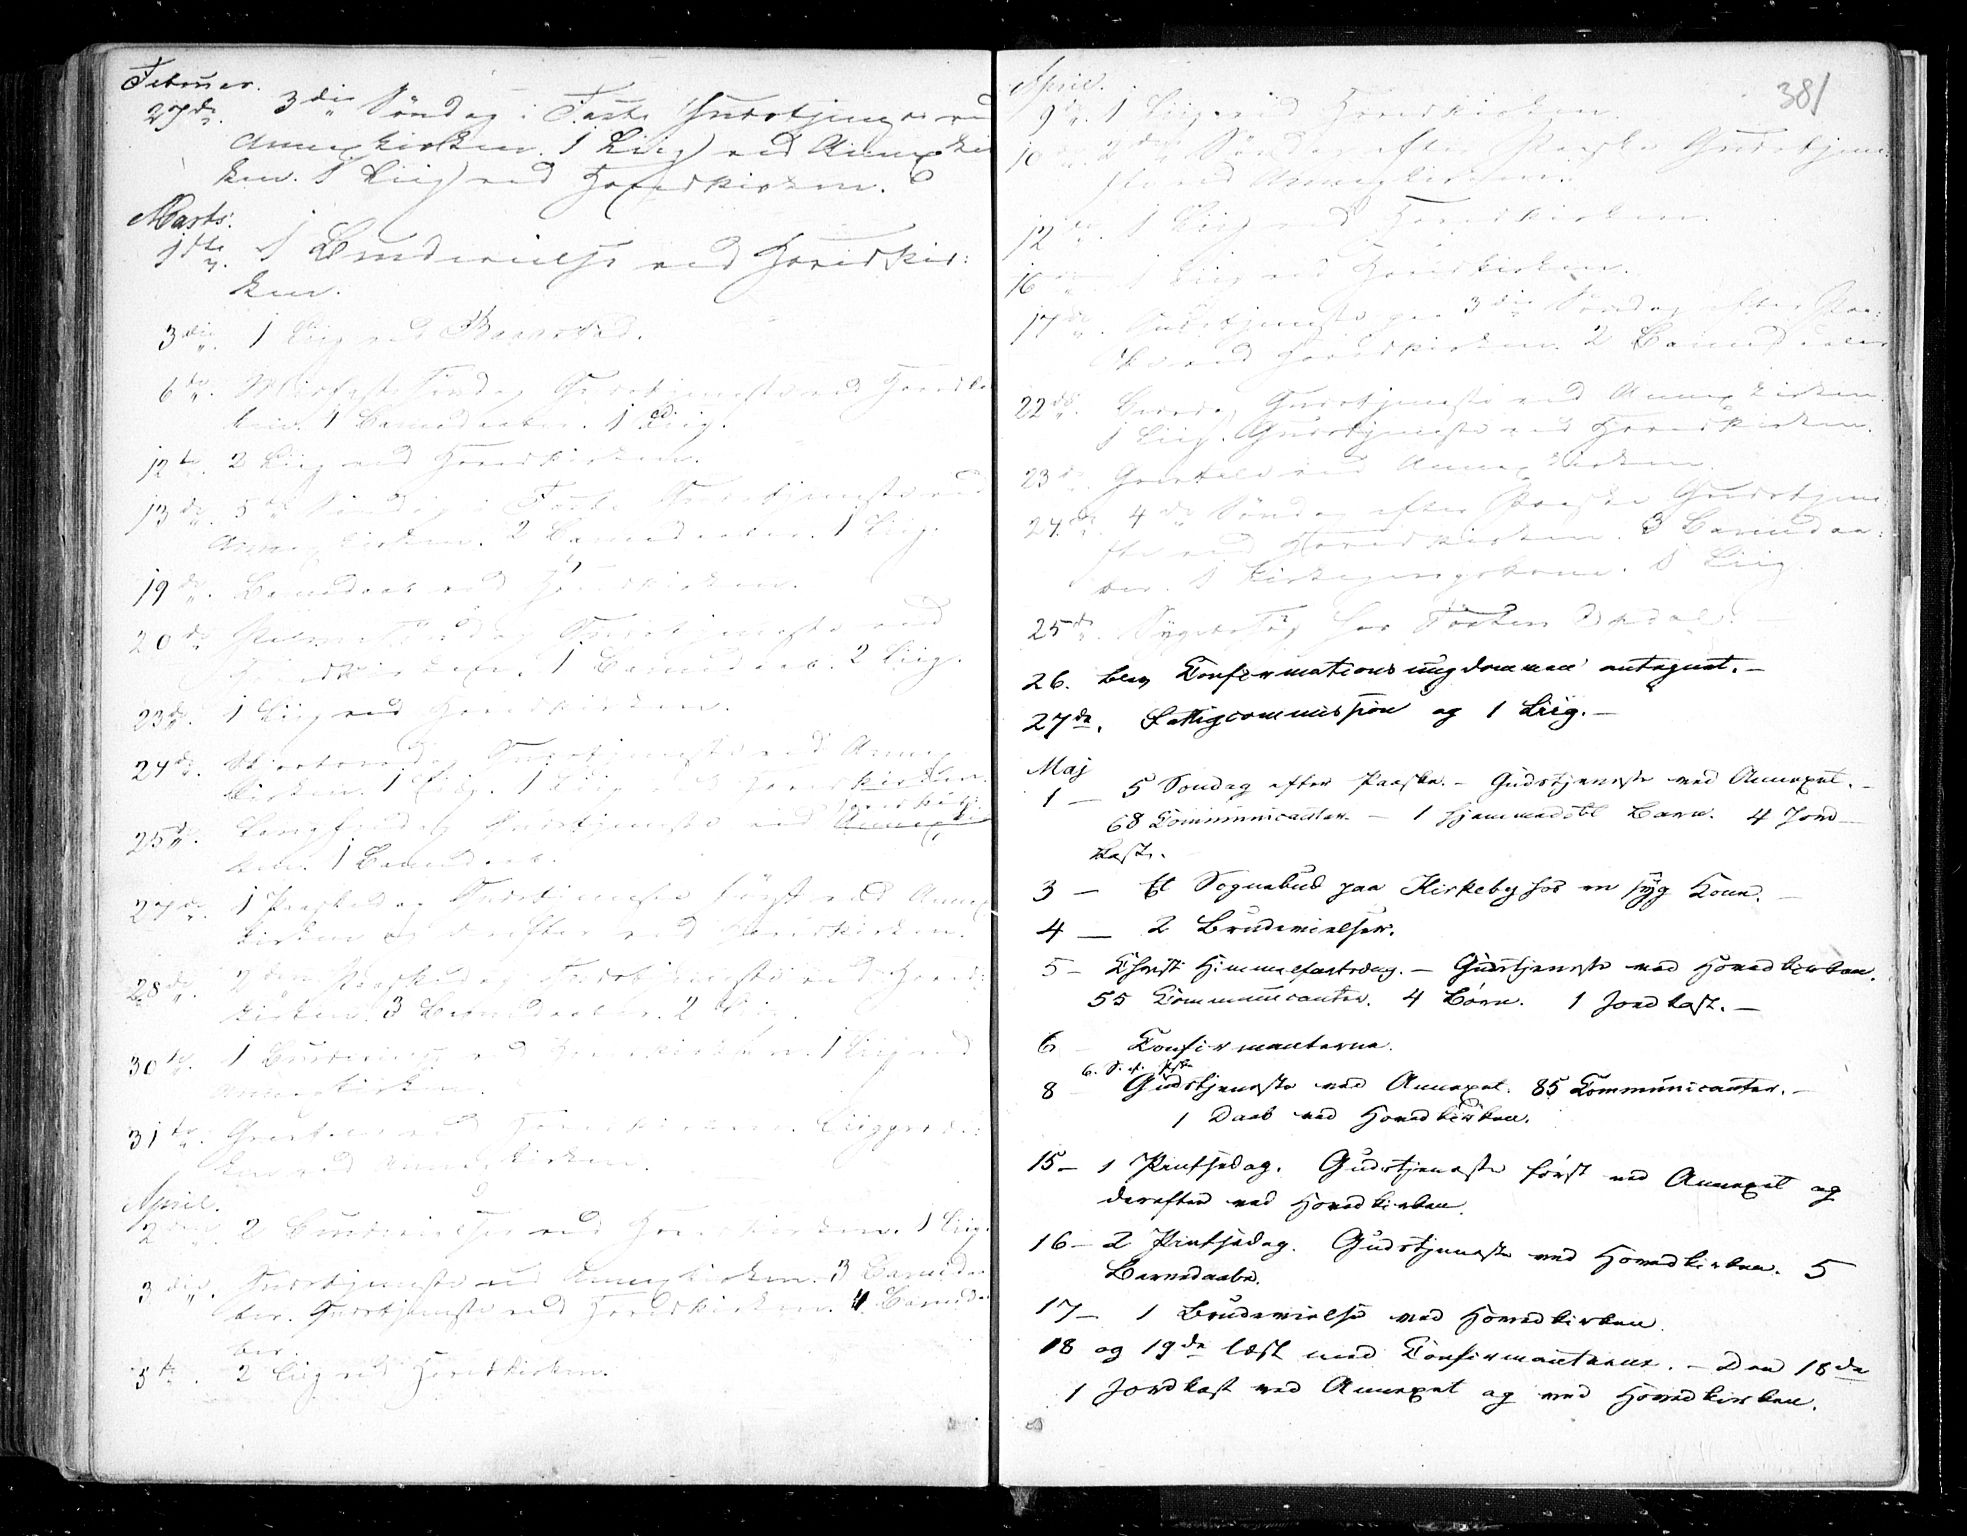 Februar.
27de. 3die Søndag i Faste Gudstjeneste ved
Annexkirken. 1 Liig ved Annexkir
ken. 1 Liig ved Hovedkirken.
Marts.
1ste. 1 Brudevielse ved Hovedkir:
ken.
3die. 1 Liig ved
6te. Midfaste Søndag Gudstjeneste ved Hovedkir
ken. 1 Barnedaaber. 1 Liig.
12te. 2 Liig ved Hovedkirken.
13de. 5te Søndag i Faste Gudstjeneste ved
Annexkirken. 2 Barnedaaber. 1 Liig.
19de. Barnedaab ved Hovedkirken.
20de. Palme Søndag Gudstjeneste ved
Hovedkirken. 1 Barnedaab. 2 Liig.
23de. 1 Liig ved Hovedkirken.
24de. Skjertorsdag Gudstjeneste ved Annex
kirken. 1 Liig. 1 Liig ved Hovedkirken.
25de. Langfredag Gudstjeneste ved Annexkir
ken. 1 Barnedaab.
27de. 1 Paaskedag Gudstjeneste først ved Annex
kirken og derefter ved Hovedkirken.
28de. 2den Paaskedag Gudstjeneste ved Hoved:
kirken. 3 Barnedaaber. 2 Liig.
30te. 1 Brudevielse ved Hovedkirken. 1 Liig ved
Annexkirken.
31te. ved Hovedkirken.
ken ved Annexkirken.
April.
2den. 2 Brudevielser ved Hovedkirken. 1 Liig.
3die. Gudstjeneste ved Annexkirken. 3 Barnedaa
ber. Gudstjeneste ved Hovedkirken. 4 Barnedaa
ber.
5te. 2 Liig ved Hovedkirken.
381
April.
9de. 1 Liig ved Hovedkirken.
10de. 2den Søndag efter Paaske Gudstjene:
ste ved Annexkirken.
12te. 1 Liig ved Hovedkirken.
16de. 1 Liig ved Hovedkirken.
17de. Gudstjeneste paa 3die Søndag efter Paa:
ske ved Hovedkirken. 2 Barnedaaber
22de. Bededag Gudstjeneste ved Annexkirken.
1 Liig. Gudstjeneste ved Hovedkirken.
23de. ved Annexkirken.
24de. 4de Søndag efter Paaske Gudstjene:
ste ved Hovedkirken. 3 Barnedaa:
ber. 1 Kirkegangskone. 1 Liig.
25de. Sygebesøg hos Torsten
26. blev Confirmationsungdommen antegnet. –
27de. Fattigcommission og 1 Liig. –
Maj
1 – 5 Søndag efter Paaske. – Gudstjeneste ved Annexet. –
68 Communicanter. – 1 hjemmedöbt Barn. 4 Jord–
kast.
3 – Et Sognebud paa Kirkeby hos en syg Kone. –
4 – 2 Brudevielser.
5 – Christi Himmelfartsdag. – Gudstjeneste ved Hovedkirken.
55 Communicanter. 4 Börn. 1 Jordkast. –
6 – Confirmanterne.
6. S. e. Pske
8 – Gudstjeneste ved Annexet. 85 Communicanter. –
1 Daab ved Hovedkirken.
15 – 1 Pintsedag. Gudstjeneste först ved Annexet og
derefter ved Hovedkirken.
16 – 2 Pintsedag. Gudstjeneste ved Hovedkirken. 5
Barnedaabe.
17 – 1 Brudevielse ved Hovedkirken.
18 og 19de læst med Confirmanterne. – Den 18de
1 Jordkast ved Annexet og ved Hovedkirken.